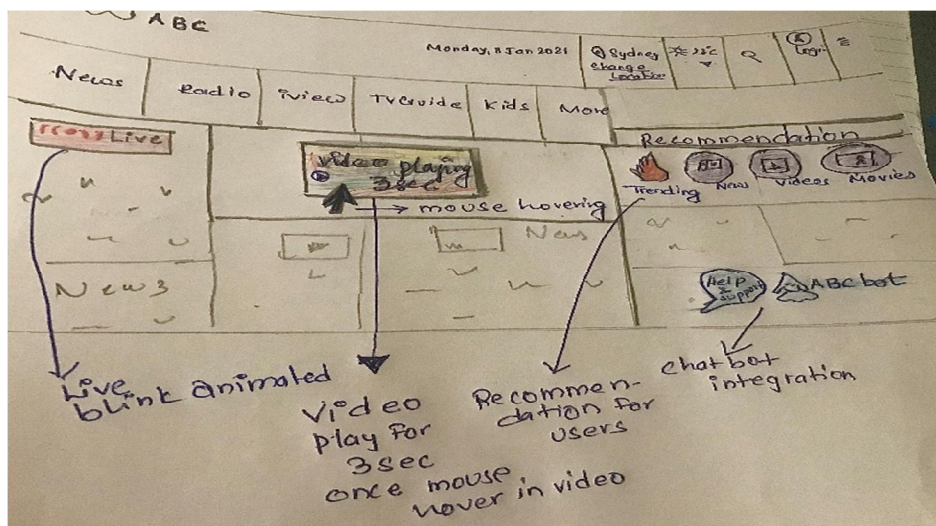 ABC
Monday, 8 Jan 2021
Sydney
change
Location
Login
News
Radio
iview
TV Guide
Kids
More
Live
Recommendation
Video playing
3sec
mouse hovering
Trending
News
Videos
Movies
News
News
Help
&
Support
ABC bot
Live
blink animated
Video
play for
3sec
once mouse
hover in video
Recommen-
dation for
users
chatbot
integration